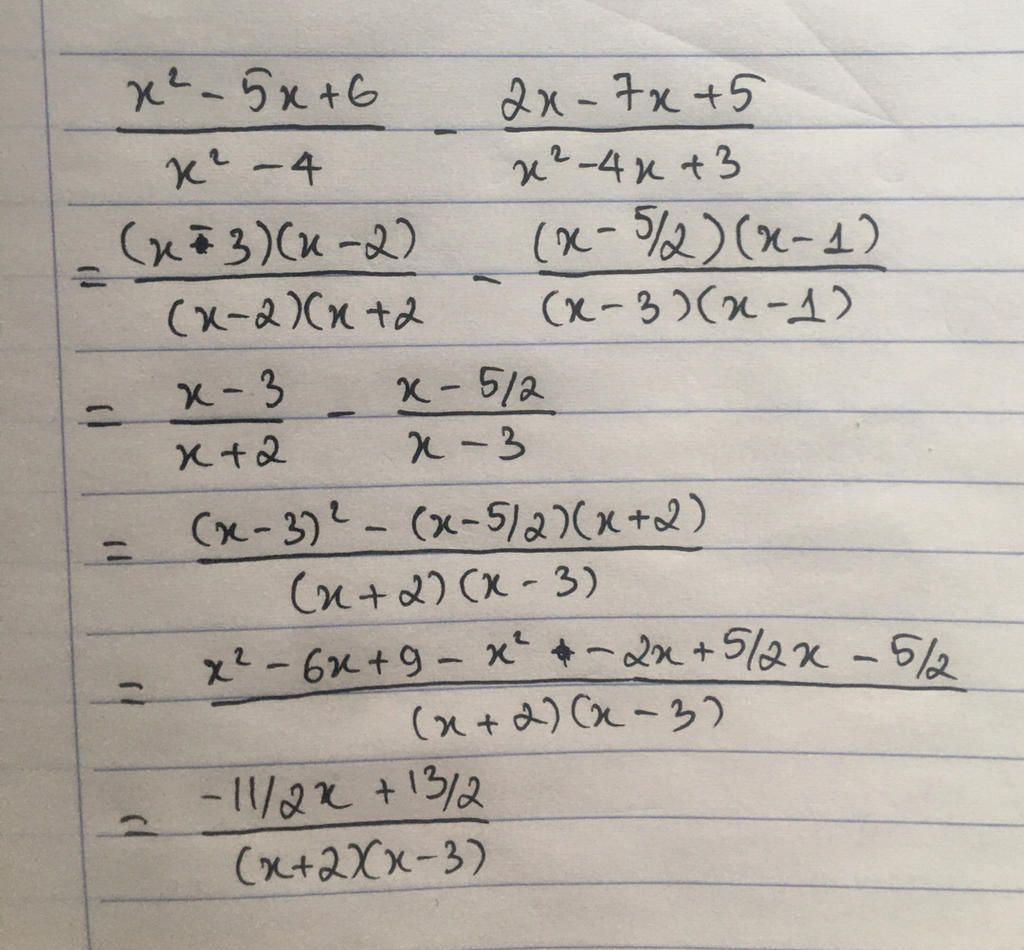 x² - 5x + 6 / x² - 4 - 2x - 7x + 5 / x² - 4x + 3
= (x - 3)(x - 2) / (x - 2)(x + 2 - (x - 5/2)(x - 1) / (x - 3)(x - 1)
= x - 3 / x + 2 - x - 5/2 / x - 3
= (x - 3)² - (x - 5/2)(x + 2) / (x + 2)(x - 3)
= x² - 6x + 9 - x² - 2x + 5/2x - 5/2 / (x + 2)(x - 3)
= -11/2x + 13/2 / (x + 2)(x - 3)